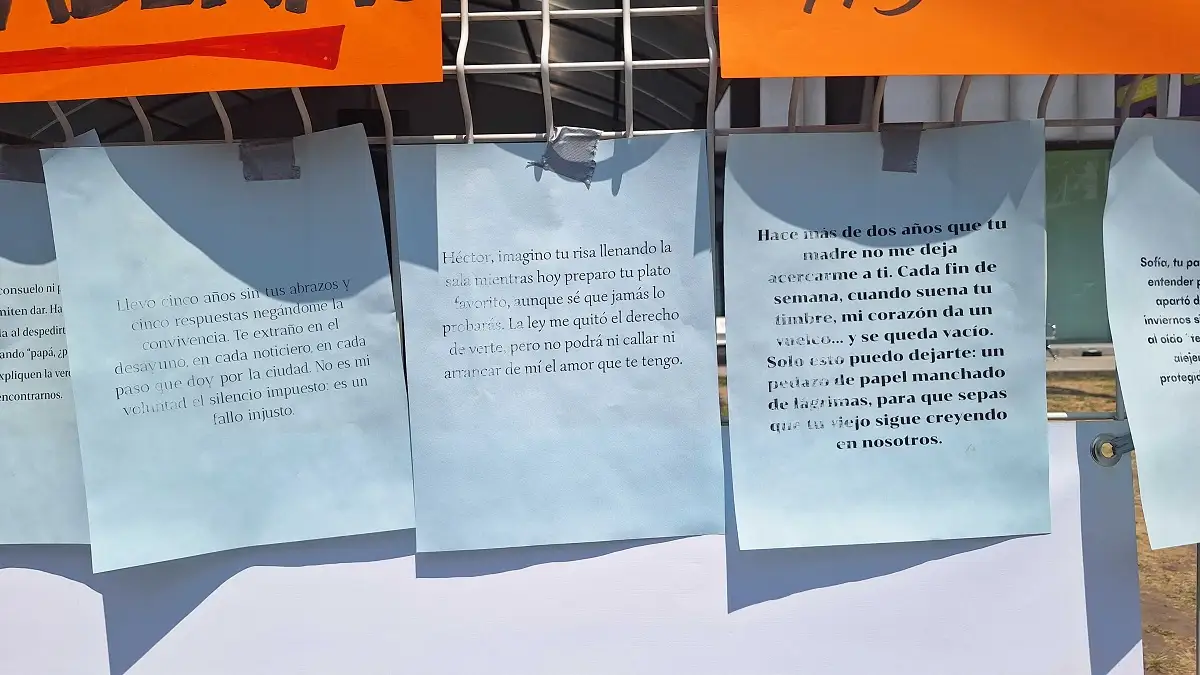 consuelo ni
miten dar. Ha
ia al despedirt
ando "papá, ¿p
xpliquen la ver
encontrarnos.
Llevo cinco años sin tus abrazos y
cinco respuestas negándome la
convivencia. Te extraño en el
desayuno, en cada noticiero, en cada
paso que doy por la ciudad. No es mi
voluntad el silencio impuesto: es un
fallo injusto.
Héctor, imagino tu risa llenando la
sala mientras hoy preparo tu plato
favorito, aunque sé que jamás lo
probarás. La ley me quitó el derecho
de verte, pero no podrá ni callar ni
arrancar de mí el amor que te tengo.
Hace más de dos años que tu
madre no me deja
acercarme a ti. Cada fin de
semana, cuando suena tu
timbre, mi corazón da un
vuelco... y se queda vacío.
Solo esto puedo dejarte: un
pedazo de papel manchado
de lágrimas, para que sepas
que tu viejo sigue creyendo
en nosotros.
Sofía, tu pa
entender p
apartó d
inviernos s
al oído "te
aleje
protegic